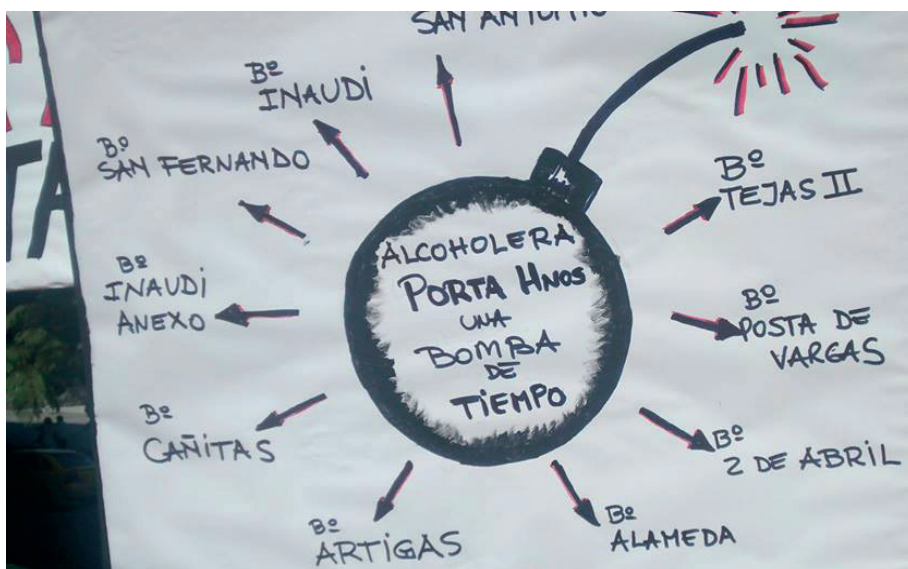 SAN ANTONIO
Bº
INAUDI
Bº
SAN FERNANDO
Bº
INAUDI
ANEXO
Bº
CAÑITAS
Bº
ARTIGAS
Bº
ALAMEDA
Bº
2 DE ABRIL
Bº
POSTA DE
VARGAS
Bº
TEJAS II
ALCOHOLERA
PORTA HNOS
UNA
BOMBA
DE
TIEMPO
TA